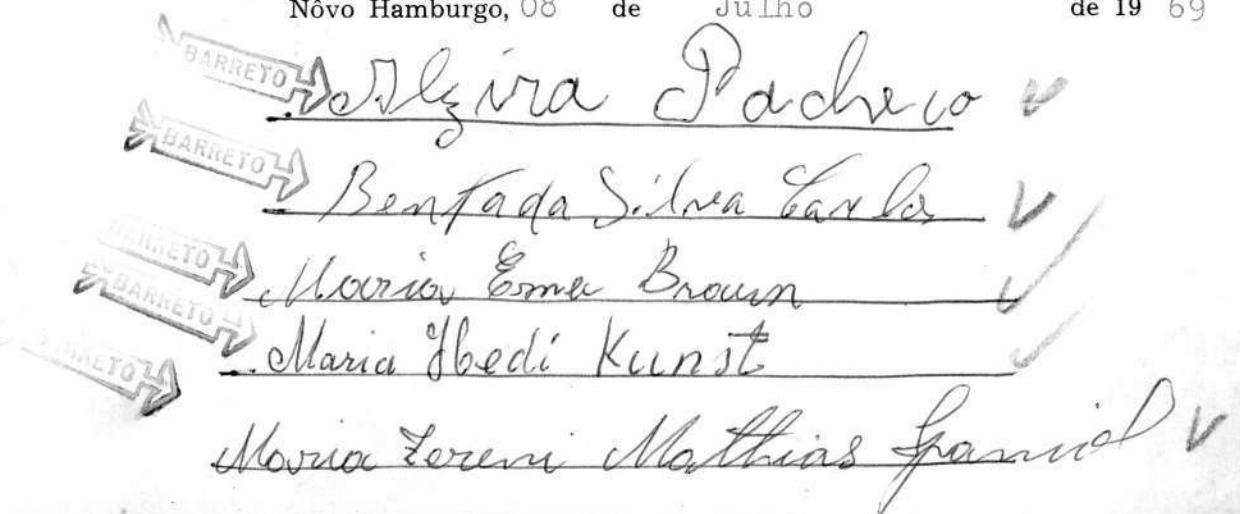 Nôvo Hamburgo, 08 de Julho de 19 69
BARRETO Alzira Pacheco
BARRETO Bentada Silva Carlos
BARRETO Maria Ema Braun
BARRETO Maria Ibedi Kunst
BARRETO
Maria Zereni Mathias Spaniol